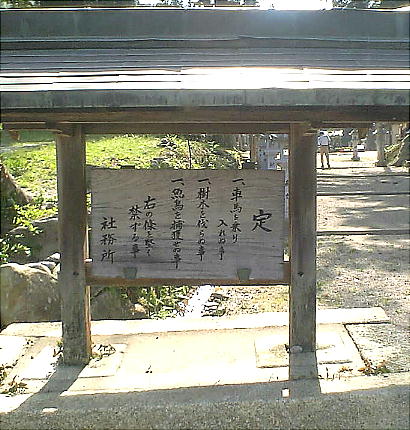 定
一、車馬を乗り
入れぬ事
一、樹木を伐らぬ事
一、魚鳥を捕獲せぬ事
右の條を堅く
禁ずる事
社務所